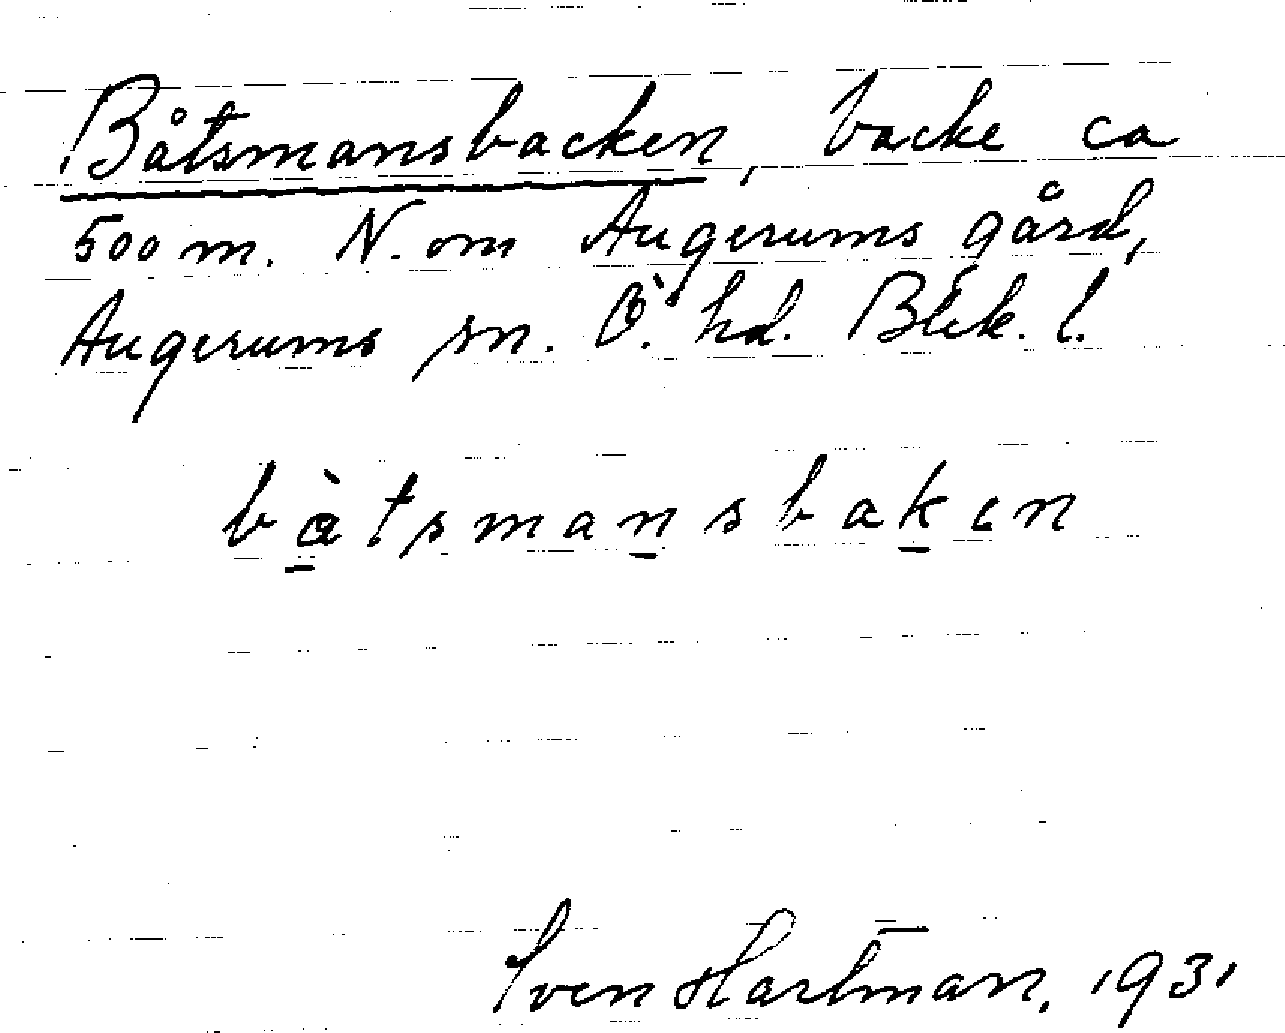 Båtsmansbacken, backe ca
500 m. N. om Augerums gård,
Augerums sn. Ö. hd. Blek. l.
bàtsmansbaken
Sven Hartman, 1931